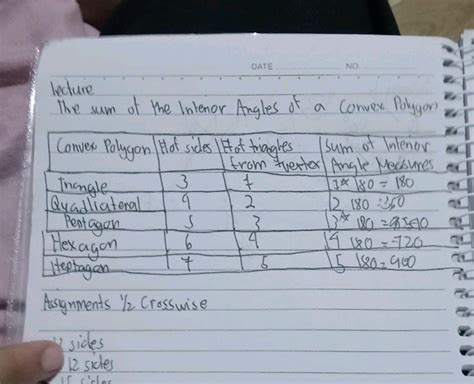 DATE NO.
Lecture
The sum of the Interior Angles of a Convex Polygon
Convex Polygon # of sides # of triangles from 1 vertex Sum of Interior Angle Measures
Triangle 3 1 1 x 180 = 180
Quadliateral 4 2 2 180 = 360
Pentagon 5 3 3 x 180 = 540
Hexagon 6 4 4 180 = 720
Heptagon 7 5 5 180 = 900
Assignments 1/2 Crosswise
sides
12 sides
15 sides